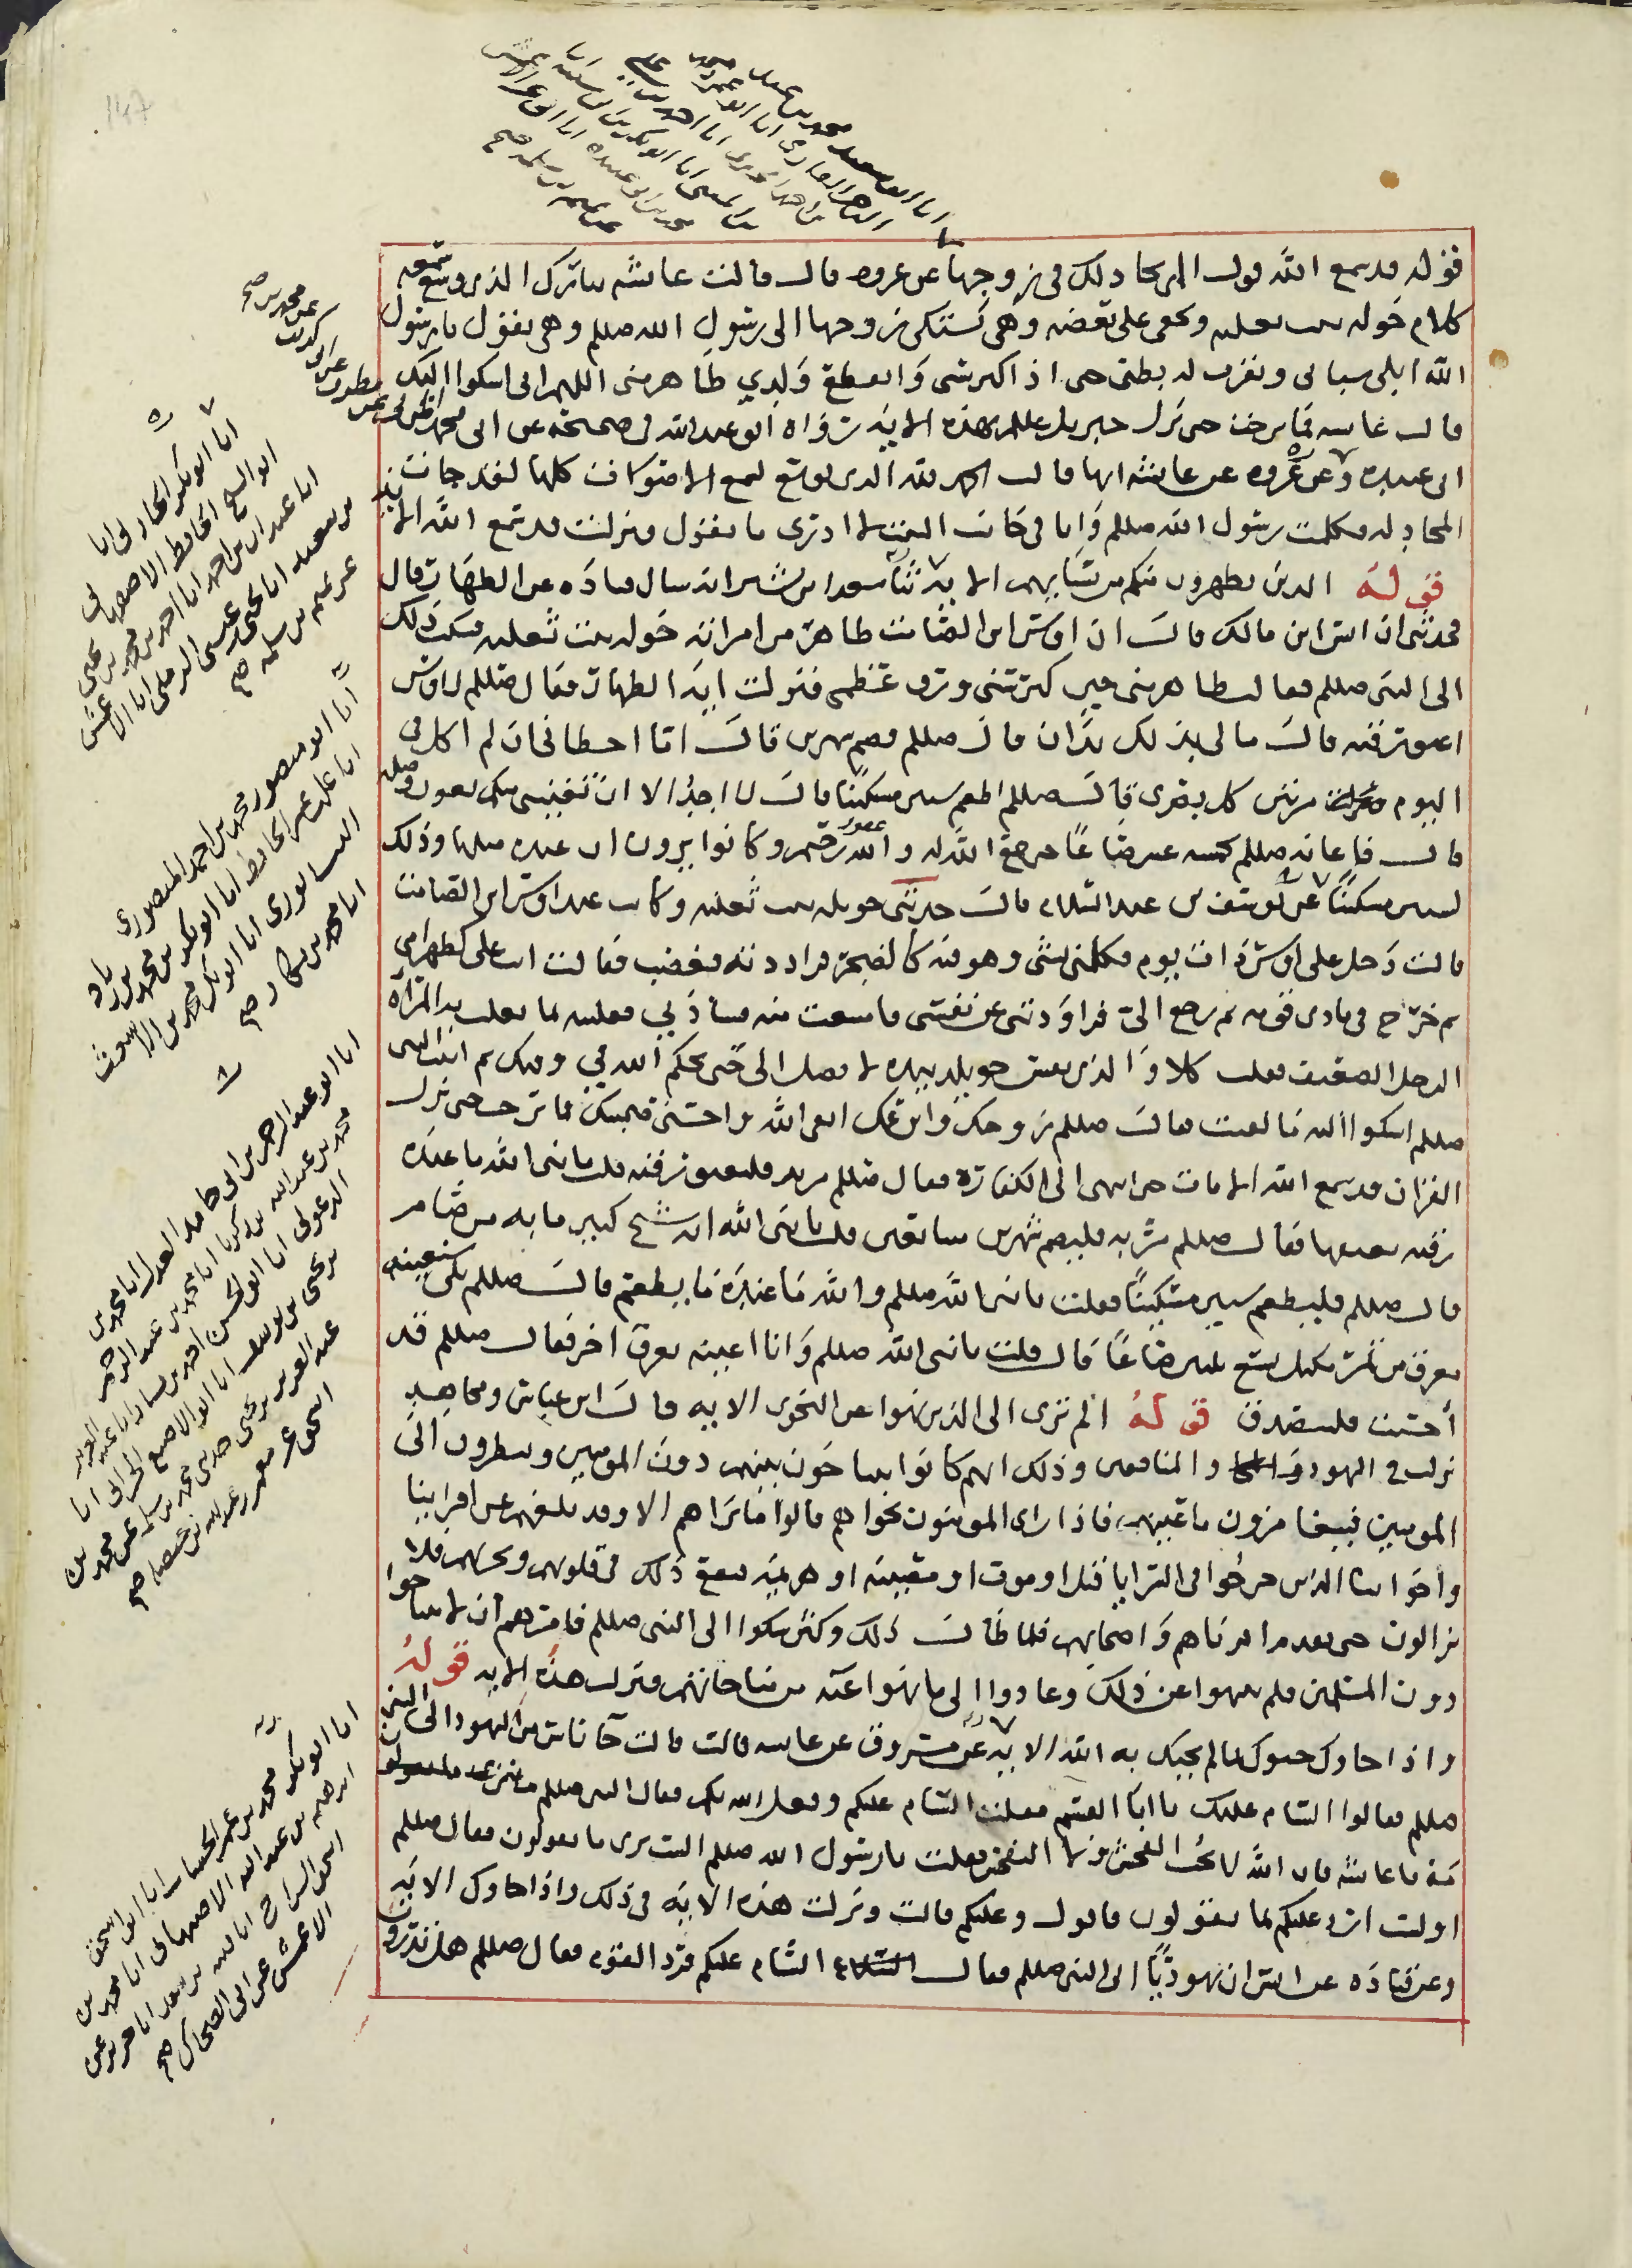 قوله قد سمع الله قول التي تجادلك في زوجها عن عروة قال قالت عائشة تبارك الذي وسع سمعه
كلام خولة بنت ثعلبة ويخفى على بعضه وهي تشتكي زوجها الى رسول الله صللم وهي تقول يا رسول
الله ابلى شبابي ونثرت له بطني حتى اذا كبر سني وانقطع ولدي ظاهر مني اللهم اني اشكوا اليك
قالت عائشة فما برحت حتى نزل جبريل عللم بهذه الاية رواه ابو عبد الله في صحيحه عن ابي محمد المزني عن مطين عن
ابي عبيدة وعن عروة عن عائشة انها قالت الحمد لله الذي توسع لسمع الاصوات كلها لقد جات
المجادلة فكلمت رسول الله صللم وانا في جانب البيت لا ادري ما يقول فنزلت قد سمع الله الاية
قوله الذين يظهرون منكم من نسايهم الاية ثنا سعيد ابن بشير انه سال قتادة عن الظهار قال
فحدثني ان انس ابن مالك قال ان اوس ابن الصامت ظاهر من امراته خولة بنت ثعلبة فشكت ذلك
الى النبي صللم فقالت ظاهر مني حين كبرتني ورق عظمي فنزلت اية الظهار فقال صللم لاوس
اعتق رقبة قال مالي بذلك يدان قال صللم فصم شهرين قال اما اخطاني ان لم اكل في
اليوم مرتين كل بصري قال صللم اطعم ستين مسكينا قال لا اجد الا ان تعينني منك بعون وصلة
قال فاعانه صللم بخمسة عشر صاعا حتى جمع الله له والله غفور رحيم وكانوا يرون ان عنده مثلها وذلك
لستين مسكينا عن يوسف بن عبد السلام قال حدثتني خويلة بنت ثعلبة وكانت عند اوس ابن الصامت
قالت دخل على اوس ذات يوم فكلمني بشي وهو فيه كالضجر فراددته فغضب فقالت انت علي كظهر امي
ثم خرج في نادي قومه ثم رجع الي فراودني عن نفسي فامتنعت منه فشادني فغلبته بما تغلب به المراة
الرجل الضعيف فقلت كلا والذي نفس خويلة بيده لا تصل الى حتى يحكم الله في وفيك ثم اتيت النبي
صللم اشكوا اليه ما لقيت فقال صللم زوجك وابن عمك اتقي الله واحسني صحبته فما برحت حتى نزل
القران قد سمع الله الايات حتى انتهى الى الكفارة فقال صللم مريه فليعتق رقبة قلت يا نبي الله ما عنده
رقبة يعتقها فقال صللم مريه فليصم شهرين متتابعين قلت يا نبي الله انه شيخ كبير ما به من صيام
قال صللم فليطعم ستين مسكينا فقلت يا نبي الله صللم والله ما عنده ما يطعم قال صللم بلى سنعينه
بعرق من تمر مكتل يسع ثلثين صاعا قال قلت يا نبي الله صللم وانا اعينه بعرق اخر فقال صللم قد
احسنت فليتصدق قوله الم تر الى الذين نهوا عن النجوى الاية قال ابن عباس ومجاهد
نزلت في اليهود والمنافقين وذلك انهم كانوا يتناجون بينهم دون المومنين وينظرون الى
المومنين فيتغامزون باعينهم فاذا راى المومنون نجواهم قالوا ما نراهم الا وقد بلغهم عن اقربائنا
واخواننا الذين خرجوا في السرايا قتل او موت او مصيبة او هزيمة فيقع ذلك في قلوبهم ويحزنهم فلا
يزالون حتى يقدم اقرباهم واصحابهم فلما طال ذلك وكثر شكوا الى النبي صللم فامرهم ان لا يتناجوا
دون المسلمين فلم ينتهوا عن ذلك وعادوا الى ما نهوا عنه من مناجاتهم فنزلت هذه الاية قوله
واذا جاوك حيوك بما لم يحيك به الله الاية عن مسروق عن عائشة قالت جا ناس من اليهود الى النبي
صللم فقالوا السام عليك يا ابا القسم فقلت السام عليكم وفعل الله بكم فقال النبي صللم
مه يا عائشة فان الله لا يحب الفحش ولا التفحش فقلت يا رسول الله صللم الست ترى ما يقولون فقال صللم
الست ارد عليكم بما يقولون فاقول وعليكم قالت ونزلت هذه الاية في ذلك واذا جاوك الاية
وعن قتادة عن انس ان يهوديا اتى النبي صللم فقال السام عليكم فرد القوم فقال صللم هل تدرون
انا ابو سعيد محمد بن عبد
عن تميم بن سلمة صح
انا ابو بكر الحارثي انا
ابو الشيخ الحافظ الاصبهاني
بن سعيد انا يحيى بن عيسى الرملي انا الاعمش
عن تميم بن سلمة صح
انا ابو منصور محمد بن احمد المنصوري
انا علي بن عمر الحافظ انا ابو بكر بن محمد بن زياد
النيسابوري انا ابو بكر محمد بن الاشعث
انا محمد بن بكار صح
انا ابو عبد الرحمن ابن ابي حامد العدل انا محمد بن
محمد بن عبد الله بن زكريا انا محمد بن عبد الرحمن
الدغولي انا ابو الحسن احمد بن سيار انا عبد العزيز
بن يحيى بن يوسف انا ابو الاصبغ الحراني انا
عبد العزيز بن يحيى حدثني محمد بن سلمة عن محمد بن
اسحق عن معمر بن عبد الله بن حنظلة صح
انا ابو بكر محمد بن عمر الخشاب انا ابو اسحق
ابرهيم بن عبد الله الاصبهاني انا محمد بن
اسحق السراج انا قتيبة بن سعيد انا جرير عن
الاعمش عن ابي الضحاك صح